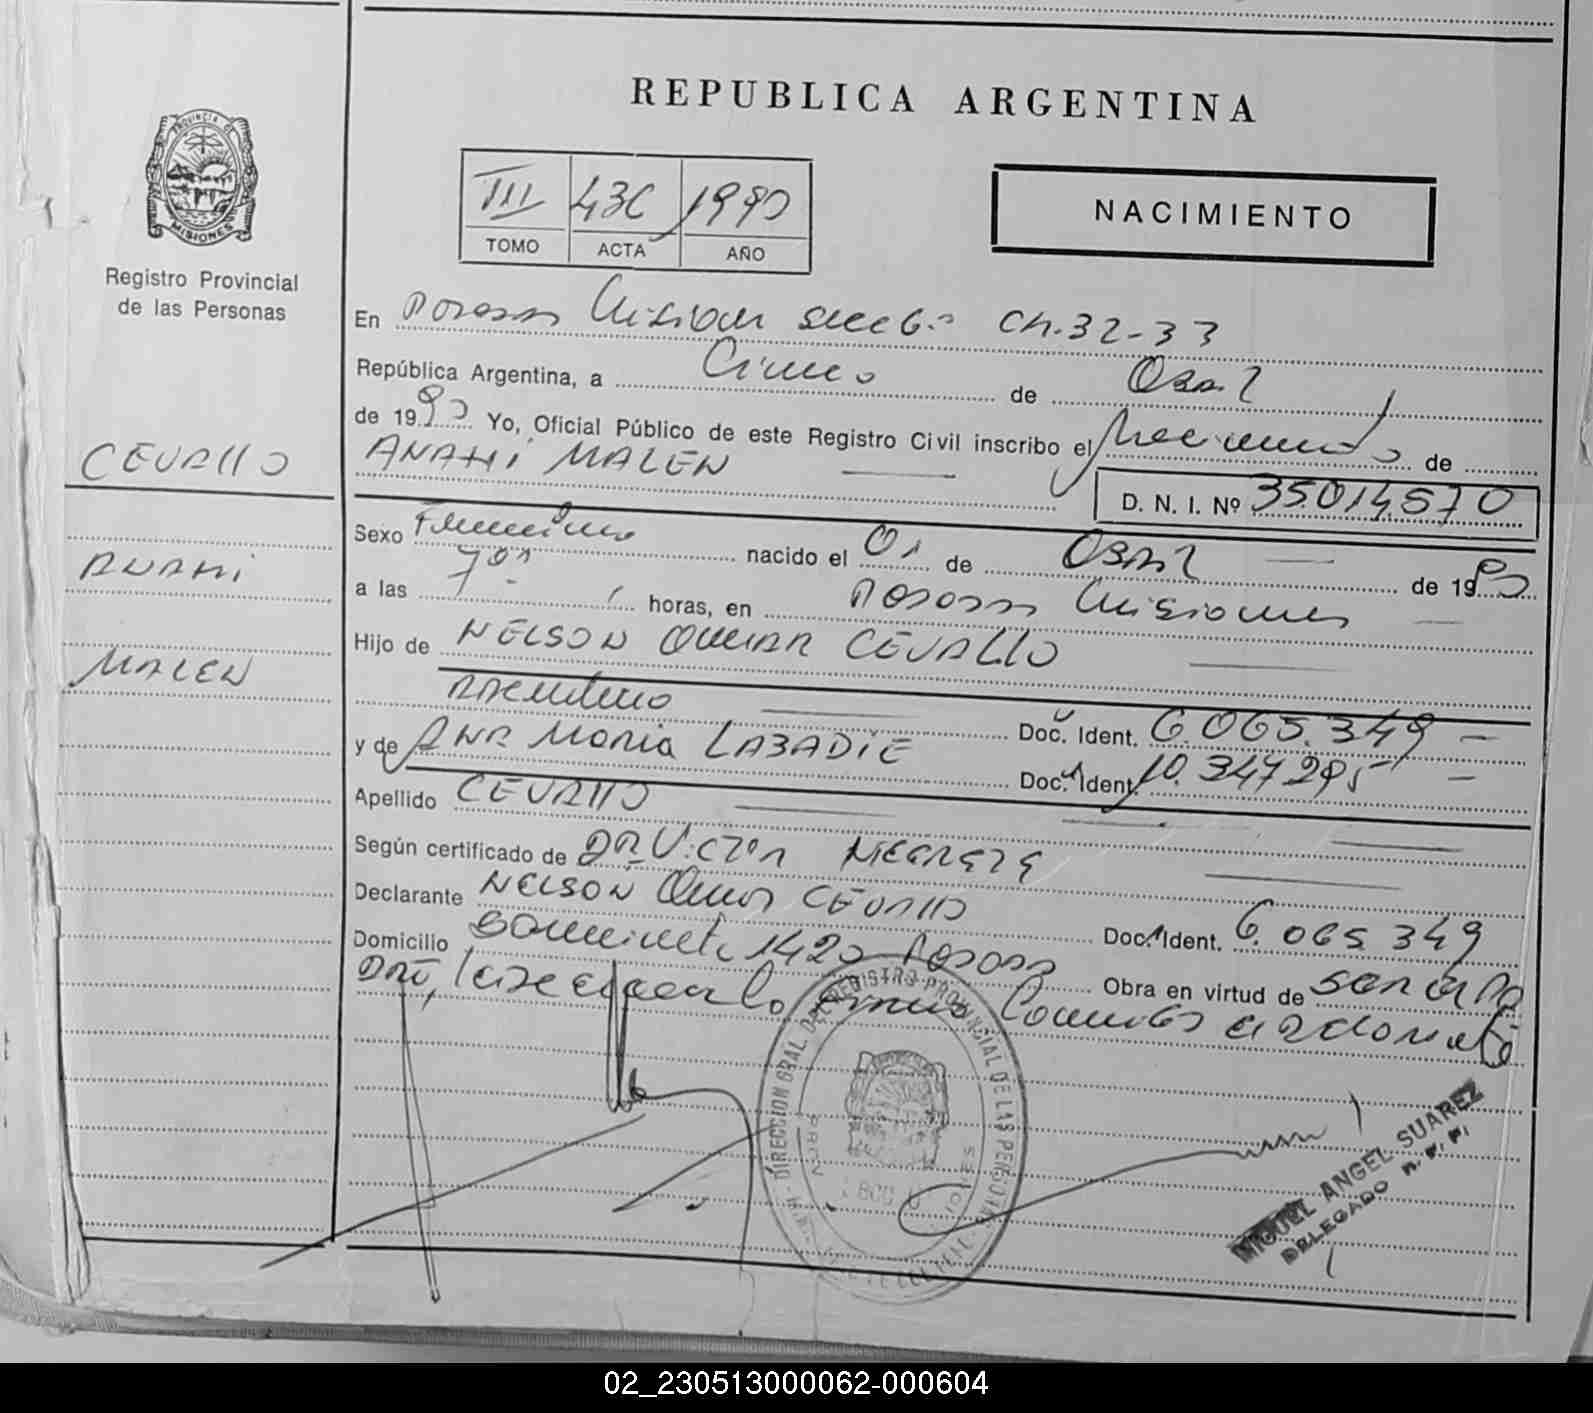 REPUBLICA ARGENTINA
PROVINCIA DE
MISIONES
Registro Provincial
de las Personas
III 43C 1990
TOMO ACTA AÑO
NACIMIENTO
En Posadas Misiones Ch.32-33
República Argentina, a Cinco de Abril
de 1990 Yo, Oficial Público de este Registro Civil inscribo el Nacimiento de
ANAHI MALEN
D. N. I. Nº 35.014.570
CEVALLO
ANAHI
MALEN
Sexo Femenino nacido el 01 de Abril de 1990
a las horas, en Posadas Misiones
Hijo de NELSON OMAR CEVALLO
Argentino Doc. Ident. 6.065.349
y de ANA MARIA LABADIE Doc. Ident. 10.347.295
Apellido CEVALLO
Según certificado de DR VICTOR NEGRETE
Declarante NELSON OMAR CEVALLO Doc. Ident. 6.065.349
Domicilio 1420 Posadas Obra en virtud de ser el pa
dre,
DIRECCION GRAL. DEL REGISTRO PROVINCIAL DE LAS PERSONAS
MIGUEL ANGEL SUAREZ
DELEGADO
02_230513000062-000604